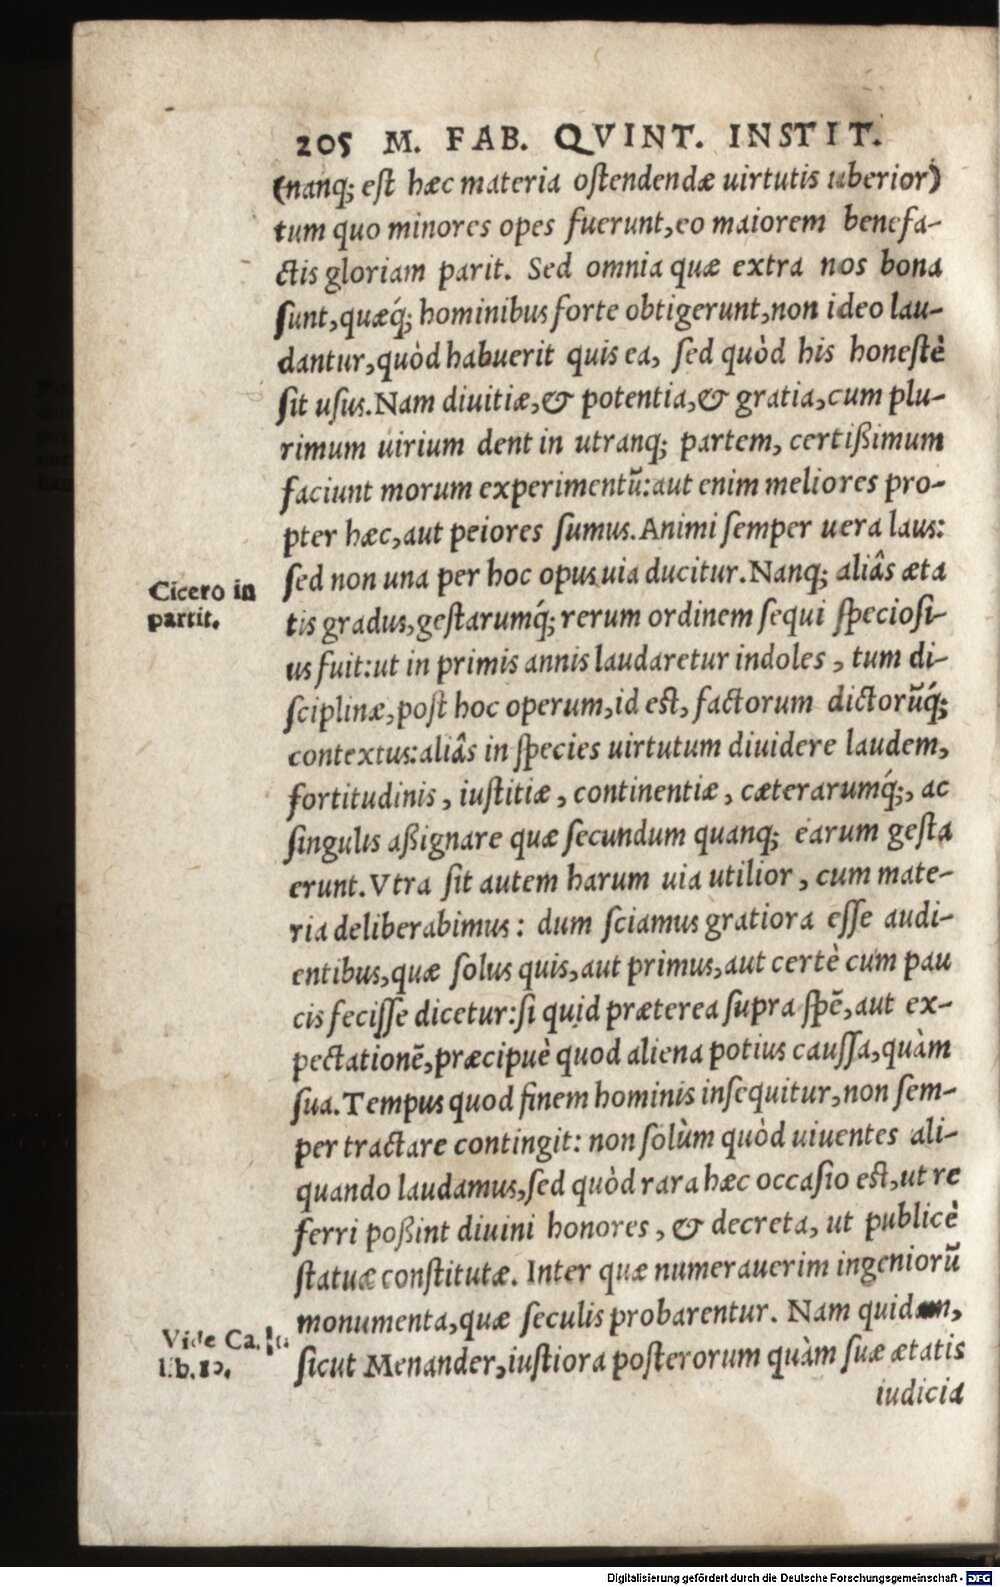 205 M. FAB. QVINT. INSTIT.
(nanq; eſt hæc materia oſtendendæ uirtutis uberior)
tum quo minores opes fuerunt, eo maiorem benefa-
ctis gloriam parit. Sed omnia quæ extra nos bona
ſunt, quæq́; hominibus forte obtigerunt, non ideo lau-
dantur, quòd habuerit quis ea, ſed quòd his honeſtè
ſit uſus. Nam diuitiæ, & potentia, & gratia, cum plu-
rimum uirium dent in utranq; partem, certißimum
faciunt morum experimentũ: aut enim meliores pro-
pter hæc, aut peiores ſumus. Animi ſemper uera laus:
Cicero in
partit.
ſed non una per hoc opus uia ducitur. Nanq; aliâs æta
tis gradus, geſtarumq́; rerum ordinem ſequi ſpecioſi-
us fuit: ut in primis annis laudaretur indoles, tum di-
ſciplinæ, poſt hoc operum, id eſt, factorum dictorũq́;
contextus: aliâs in ſpecies uirtutum diuidere laudem,
fortitudinis, iuſtitiæ, continentiæ, cæterarumq́;, ac
ſingulis aßignare quæ ſecundum quanq; earum geſta
erunt. Vtra ſit autem harum uia utilior, cum mate-
ria deliberabimus: dum ſciamus gratiora eſſe audi-
entibus, quæ ſolus quis, aut primus, aut certè cum pau
cis feciſſe dicetur: ſi quid præterea ſupra ſpẽ, aut ex-
pectationẽ, præcipuè quod aliena potius cauſſa, quàm
ſua. Tempus quod finem hominis inſequitur, non ſem-
per tractare contingit: non ſolùm quòd uiuentes ali-
quando laudamus, ſed quòd rara hæc occaſio eſt, ut re
ferri poßint diuini honores, & decreta, ut publicè
ſtatuæ conſtitutæ. Inter quæ numerauerim ingeniorũ
monumenta, quæ ſeculis probarentur. Nam quidam,
Vide Ca.
lib. 10.
ſicut Menander, iuſtiora poſterorum quàm ſuæ ætatis
iudicia
Digitalisierung gefördert durch die Deutsche Forschungsgemeinschaft - DFG